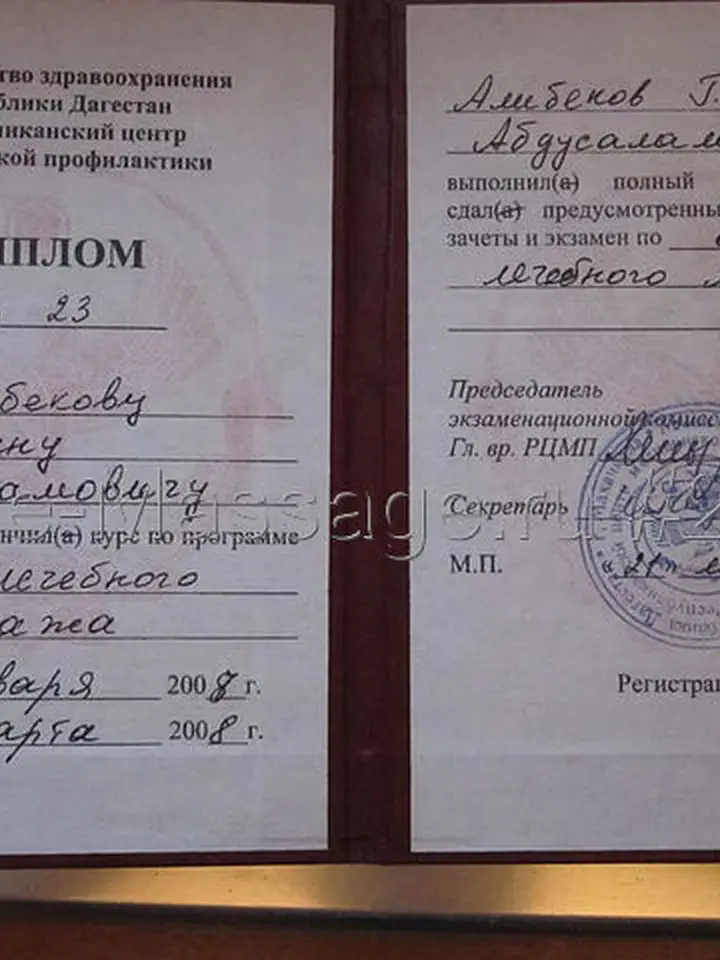 тво здравоохранения
блики Дагестан
иканский центр
кой профилактики
ИПЛОМ
23
бекову
ну
амовичу
нчил(а) курс по программе
лечебного
ажа
варя 2008 г.
арта 2008 г.
Алибеков Г.
Абдусалам
выполнил(а) полный
сдал(а) предусмотренны
зачеты и экзамен по
лечебного
Председатель
экзаменационной комисс
Гл. вр. РЦМП
Секретарь
М.П.
Регистрац